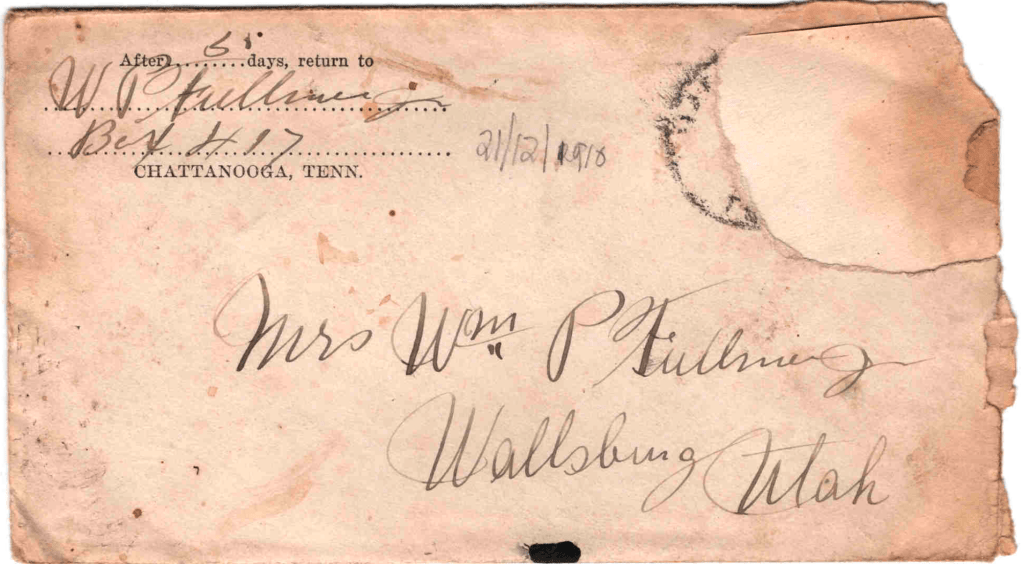 After 5 days, return to
W P Fullmer Jr
Box 417
CHATTANOOGA, TENN.
21/12/1910
Mrs Wm P Fullmer Jr
Wallsburg
Utah